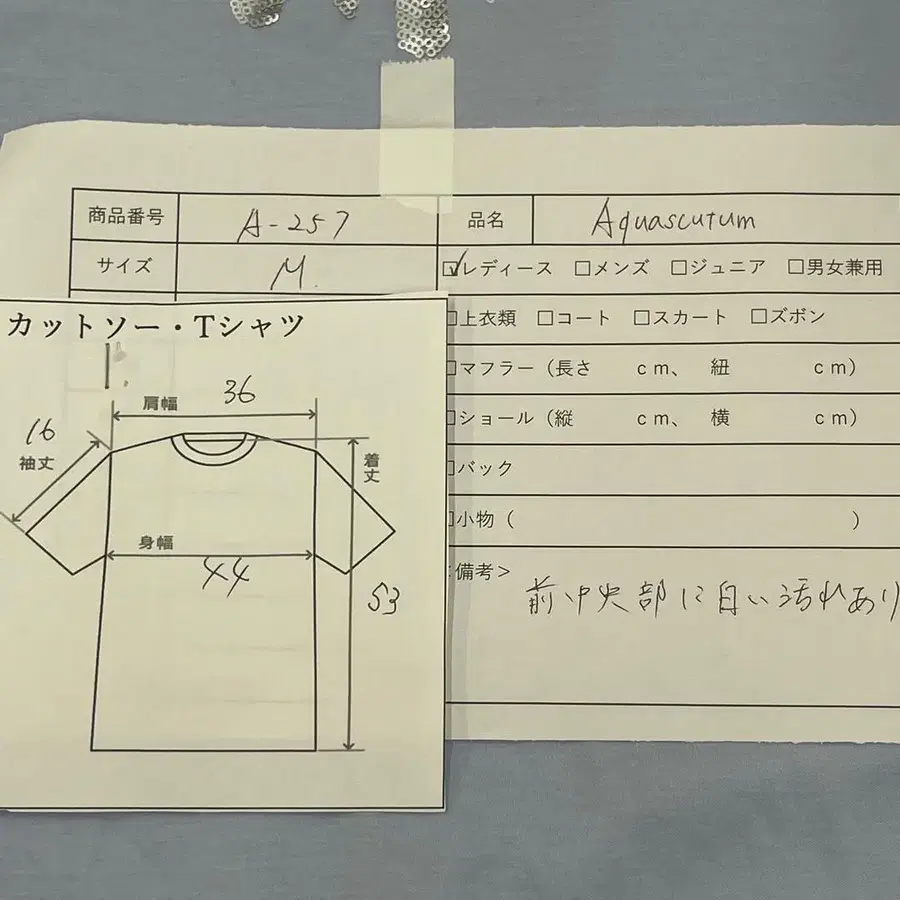 商品番号 A-257 品名 Aquascutum
サイズ M. ☑レディース □メンズ □ジュニア □男女兼用
□上衣類 □コート □スカート □ズボン
□マフラー（長さ cm、 紐 cm）
□ショール（縦 cm、 横 cm）
□バック
□小物（ ）
備考＞
前中央部に白い汚れあり
カットソー・Tシャツ
36
肩幅
16
袖丈
着丈
身幅
44
53